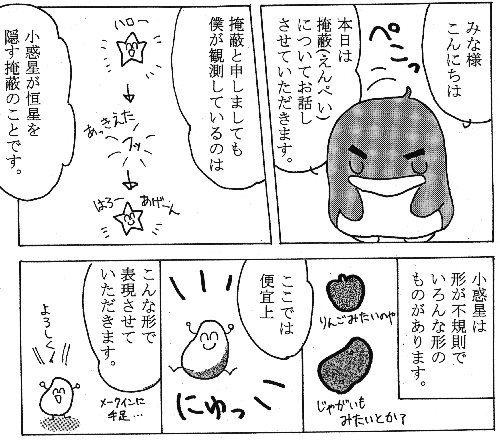 みな様
こんにちは
ぺこっ
本日は
掩蔽(えんぺい)
についてお話し
させていただきます。
掩蔽と申しましても
僕が観測しているのは
ハロー
あっきえた
フッ
はろー
あげーん
小惑星が恒星を
隠す掩蔽のことです。
小惑星は
形が不規則で
いろんな形の
ものがあります。
りんごみたいのや
じゃがいも
みたいとか?
ここでは
便宜上
にゅっ
こんな形で
表現させて
いただきます。
よろしく
メークインに
手足…